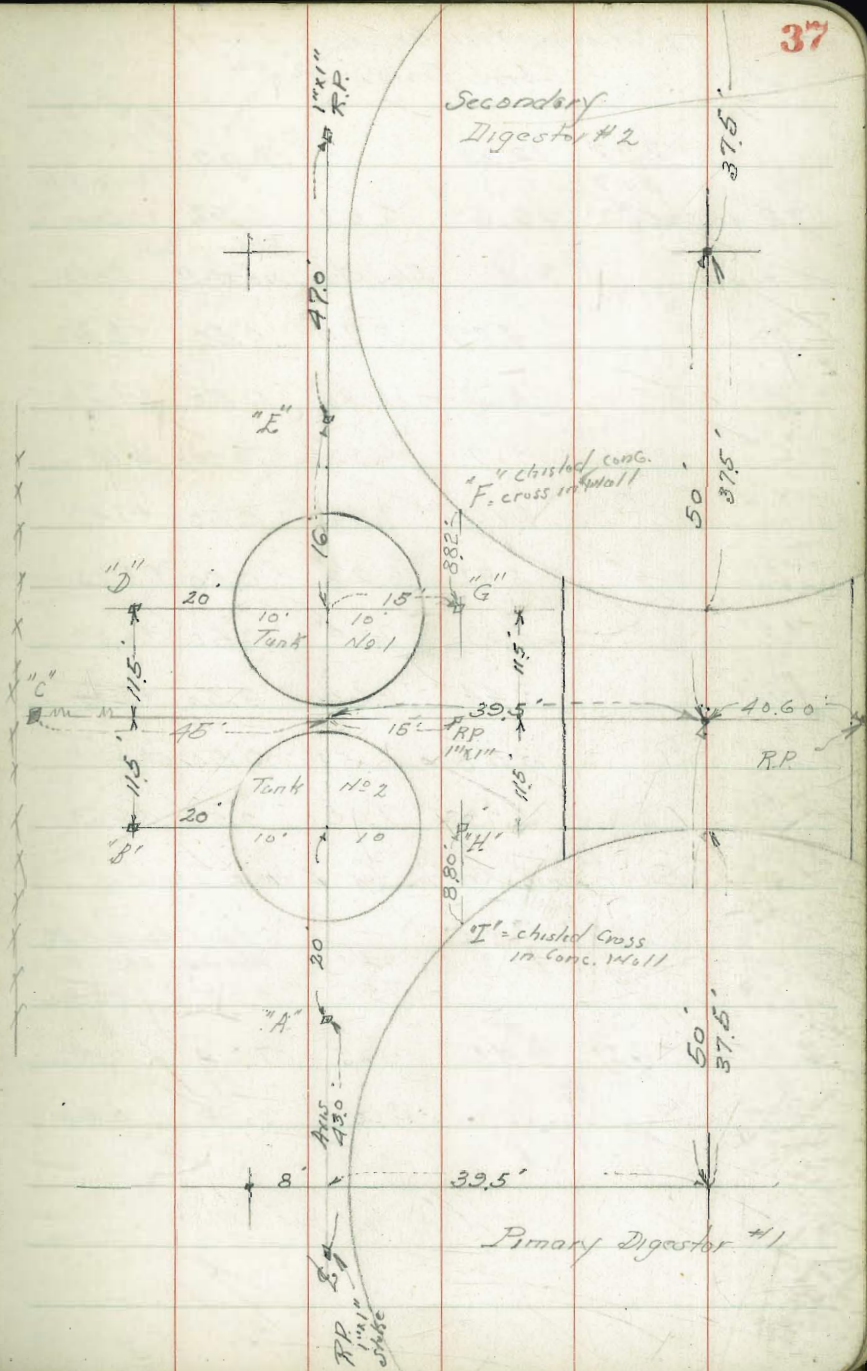 37
1"x1"
R.P.
Secondary
Digestor #2
37.5'
47.0'
"E"
"F" = chisled conc.
cross in Wall
50'
37.5'
16'
8.82'
"D"
20'
15'
"G"
10' 10'
Tank No 1
11.5'
11.5'
"C"
39.5'
40.60'
45'
15'
R.P.
1"x1"
R.P.
11.5'
11.5'
Tank No 2
20'
10' 10
"B"
"H"
8.80'
"I" = chisled Cross
in Conc. Wall
20'
"A"
50'
37.5'
Axis
43.0'
8'
39.5'
Pimary Digestor #1
R.P.
1"x1"
Stake